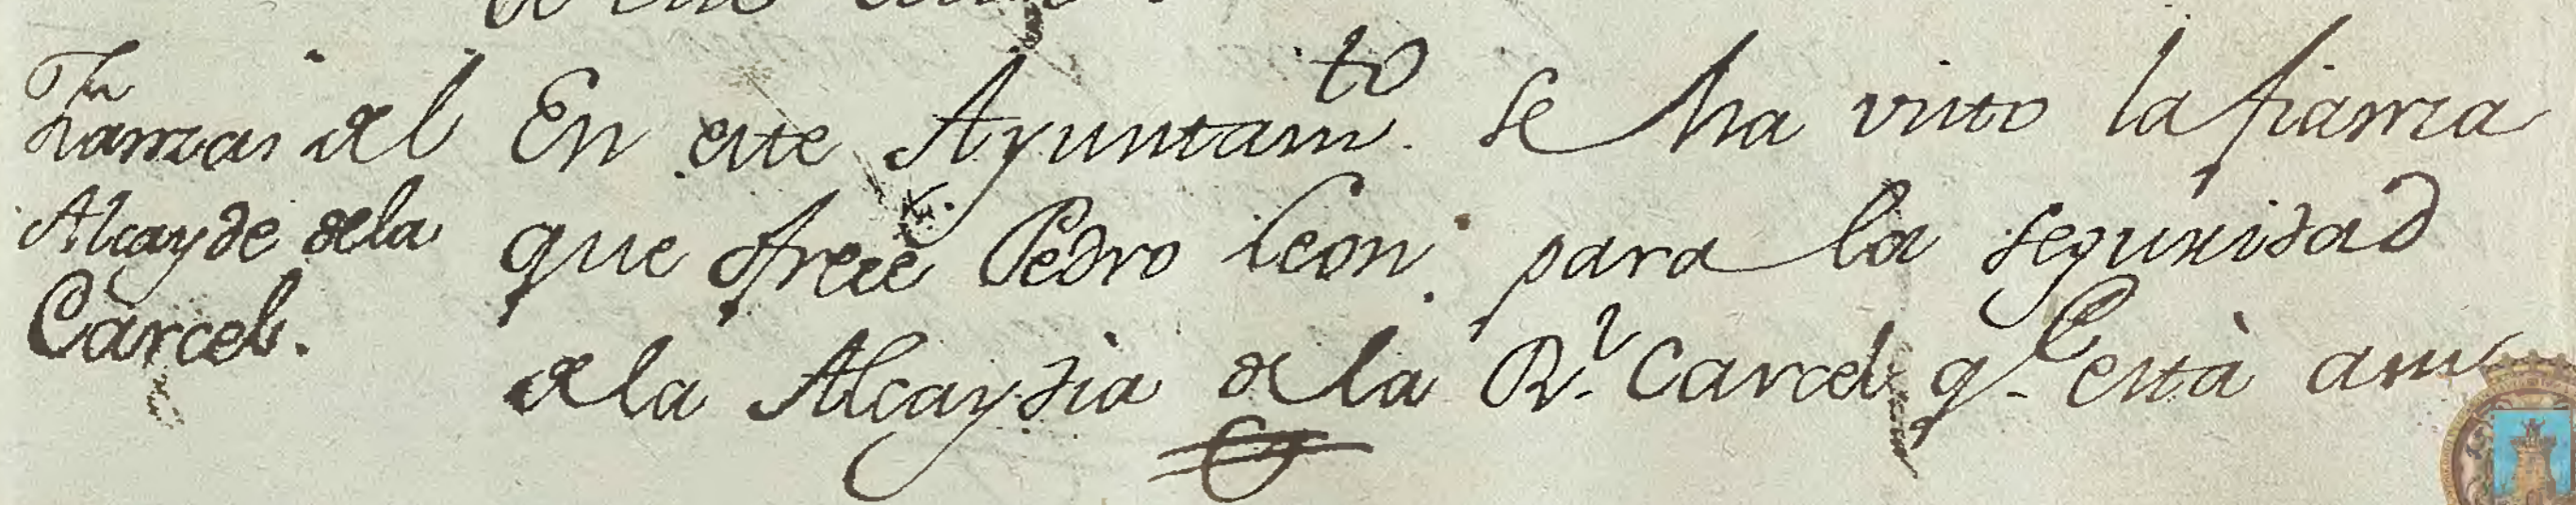 Fianzas del
Alcayde dela
Carcel.
En este Ayuntam.to se ha visto la fianza
que ofrece Pedro Leon para la seguridad
de la Alcaydia de la R.l Carcel q.e está a mi